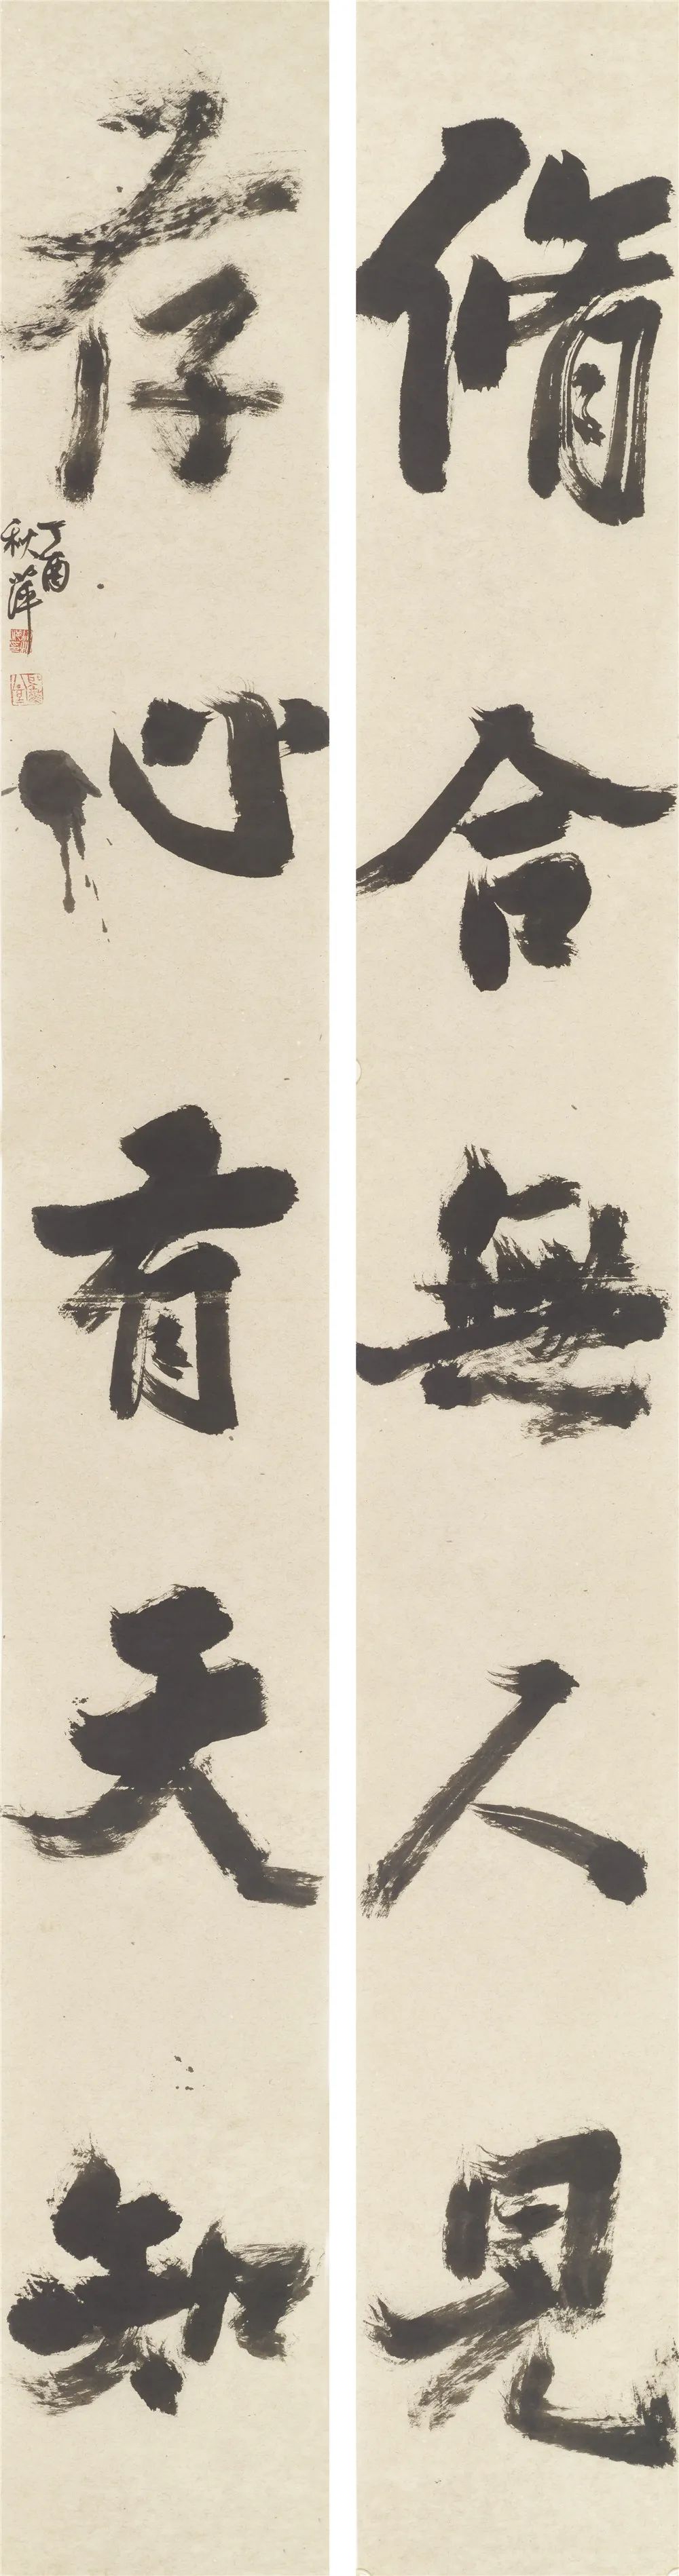 脩合無人見
存心有天知
丁酉
秋